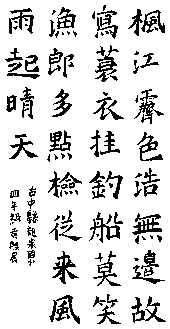 楓江霽色浩無邊故
寫蓑衣挂釣船莫笑
漁郎多點檢從来風
雨起晴天
台中縣
四年級